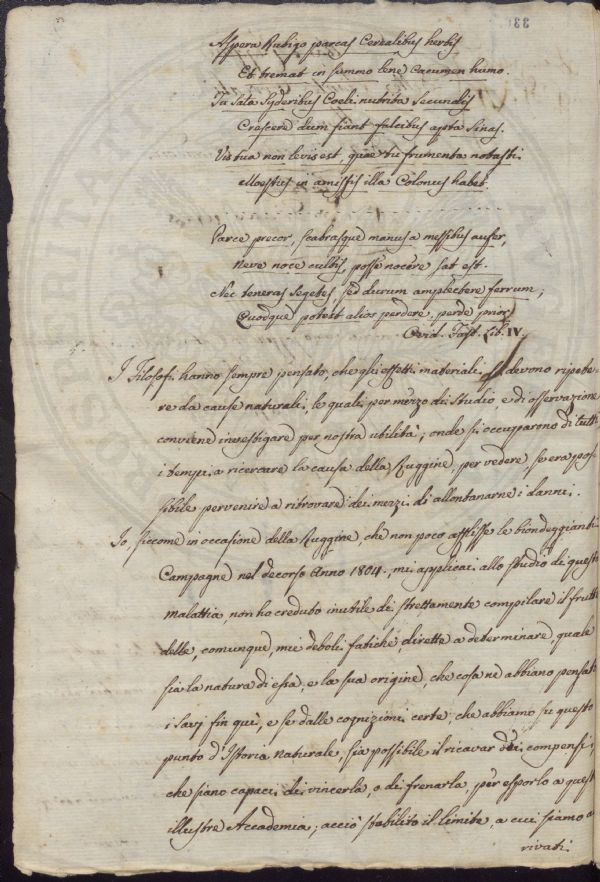 Aspera Rubigo parcas Cerealibus herbis
Et tremat in summo lene Cacumen humo.
Tu sata Syderibus Coeli nutrita secundis
Crescere dum fiant falcibus apta sinas.
Vis tua non levis est, quae tu frumenta notasti
Moestus in amissis illa Colonus habet.
Parce precor, scabrasque manus a messibus aufer,
Neve noce cultis, posse nocere sat est.
Nec teneras Segetes, sed durum amplectere ferrum;
Quodque potest alios perdere, perde prior
Ovid. Fast. Lib. IV.
I Filosofi hanno sempre pensato, che gli effetti materiali si devono ripete-
re da cause naturali, le quali per mezzo di Studio, e di osservazione
conviene investigare per nostra utilità; onde si occuparono di tutti
i tempi a ricercare la causa della Ruggine, per vedere, se era pos-
sibile pervenire a ritrovare dei mezzi di allontanarne i danni.
Io, siccome in occasione della Ruggine, che non poco afflisse le biondeggianti
Campagne nel decorso Anno 1804., mi applicai allo studio di questa
malattia non ho creduto inutile di strettamente compilare il frutto
delle, comunque, mie deboli fatiche, dirette a determinare quale
sia la natura di essa, e la sua origine, che cosa ne abbiano pensato
i savj fin quì, e se dalle cognizioni certe, che abbiamo su questo
punto d'Istoria Naturale, sia possibile il ricavar dei compensi,
che siano capaci di vincerla, o di frenarla, per esporlo a quest'
illustre Accademia; acciò stabilito il limite, a cui siamo ar
rivati